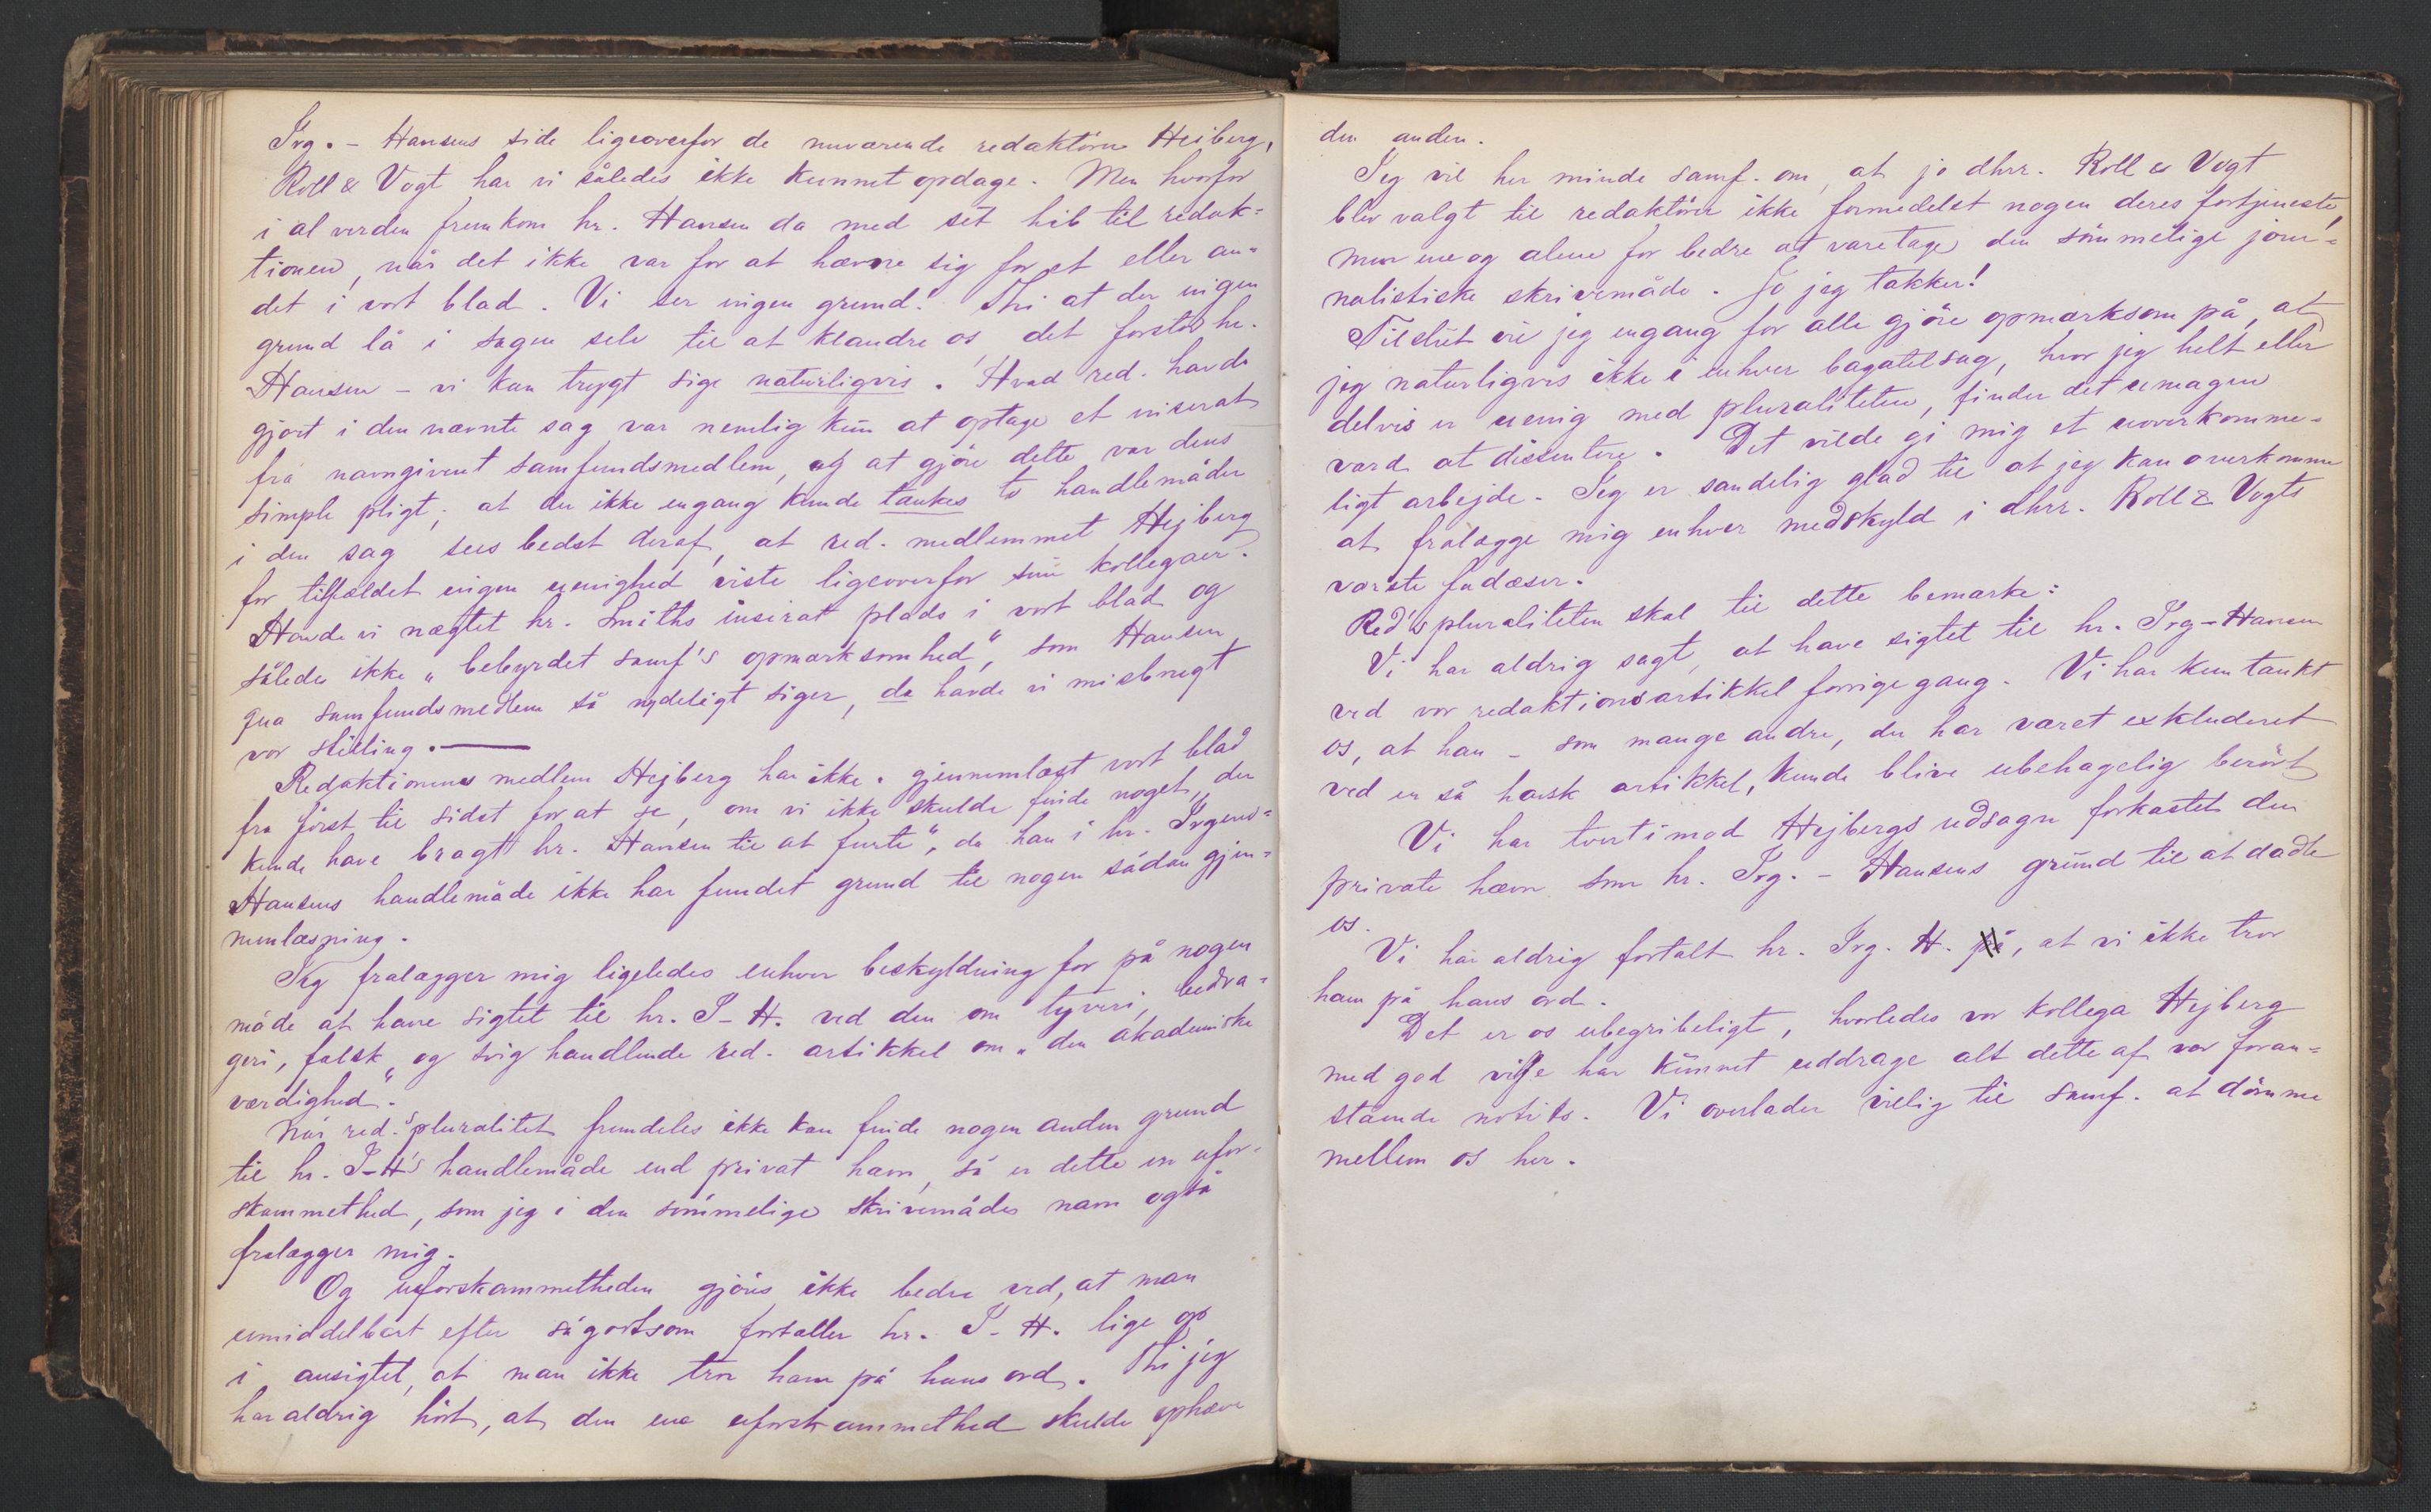 Irg. - Hansens side ligeoverfor de nuværende redaktörer Heiberg,
Roll & Vogt har vi således ikke kunnet opdage. Men hvorfor
i al verden fremkom hr. Hansen da med sit hib til redak=
tionen, når det ikke var for at hævne sig for et eller an=
det i vort blad. Vi ser ingen grund! Thi at der ingen
grund lå i sagen selv til at klandre os, det forstod hr.
Hansen - vi kan trygt sige naturligvis. Hvad red. havde
gjort i den nævnte sag var nemlig kun at optage et inserat
fra navngivent samfundsmedlem, og at gjöre dette var dens
simple pligt; at der ikke engang kunde tænkes to handlemåder
i den sag sees bedst deraf, at red. medlemmet Hejberg
for tilfældet ingen uenighed viste ligeoverfor sine kollegaer.
Havde vi nægtet hr. Smiths inserat plads i vort blad og
således ikke "bebyrdet samf's opmærksomhed", som Hansen
qua samfundsmedlem så nydeligt siger, da havde vi misbrugt
vor stilling. —
Redaktionens medlem Hejberg har ikke "gjennemlæst vort blad
fra först til sidst for at se, om vi ikke skulde finde noget, der
kunde have bragt hr. Hansen til at furte", da han i hr. Irgens=
Hansens handlemåde ikke har fundet grund til nogen sådan gjen=
nemlæsning.
Jeg fralægger mig ligeledes enhver beskyldning for på nogen
måde at have sigtet til hr. I-H. ved den om tyveri, bedra=
geri, falsk og svig handlende red. artikkel om "den akademiske
værdighed".
Når red.'s pluralitet fremdeles ikke kan finde nogen anden grund
til hr. I-H's handlemåde end privat hævn, så er dette en ufor-
skammethed, som jeg i den sömmelige skrivemådes navn også
fralægger mig.
Og uforskammetheden gjöres ikke bedre ved, at man
umiddelbart efter sågodtsom fortæller hr. I-H. lige op
i ansigtet, at man ikke tror ham på hans ord. Thi jeg
har aldrig hört, at den ene uforskammethed skulde ophæve
den anden.
Jeg vil her minde samf. om, at jo dhrr. Roll & Vogt
blev valgt til redaktörer ikke formedelst nogen deres fortjeneste,
men ene og alene for bedre at varetage den sömmelige jour=
nalistiske skrivemåde. Jo jeg takker!
Tilslut vil jeg engang for alle gjöre opmærksom på, at
jeg naturligvis ikke i enhver bagatelsag, hvor jeg helt eller
delvis er uenig med pluraliteten, finder det umagen
værd at dissentere. Det vilde gi mig et uoverkomme=
ligt arbejde. Jeg er sandelig glad til at jeg kan overkomme
at fralægge mig enhver medskyld i dhrr. Roll & Vogts
værste fadæser.
Red's pluraliteten skal til dette bemærke:
Vi har aldrig sagt, at have sigtet til hr. Irg-Hansen
ved vor redaktionsartikkel forrige gang. Vi har kun tænkt
os, at han - som mange andre, der har været exkluderet
ved en så harsk artikkel, kunde blive ubehagelig berört
Vi har tvertimod Hejbergs udsagn forkastet den
private hævn som hr. Irg. - Hansens grund til at dadle
os.
Vi har aldrig fortalt hr. Irg. H. på, at vi ikke tror
ham på hans ord.
Det er os ubegribeligt, hvorledes vor kollega Hejberg
med god vilje har kunnet uddrage alt dette af vor foran=
stående notits. Vi overlader villig til samf. at dömme
mellem os her.